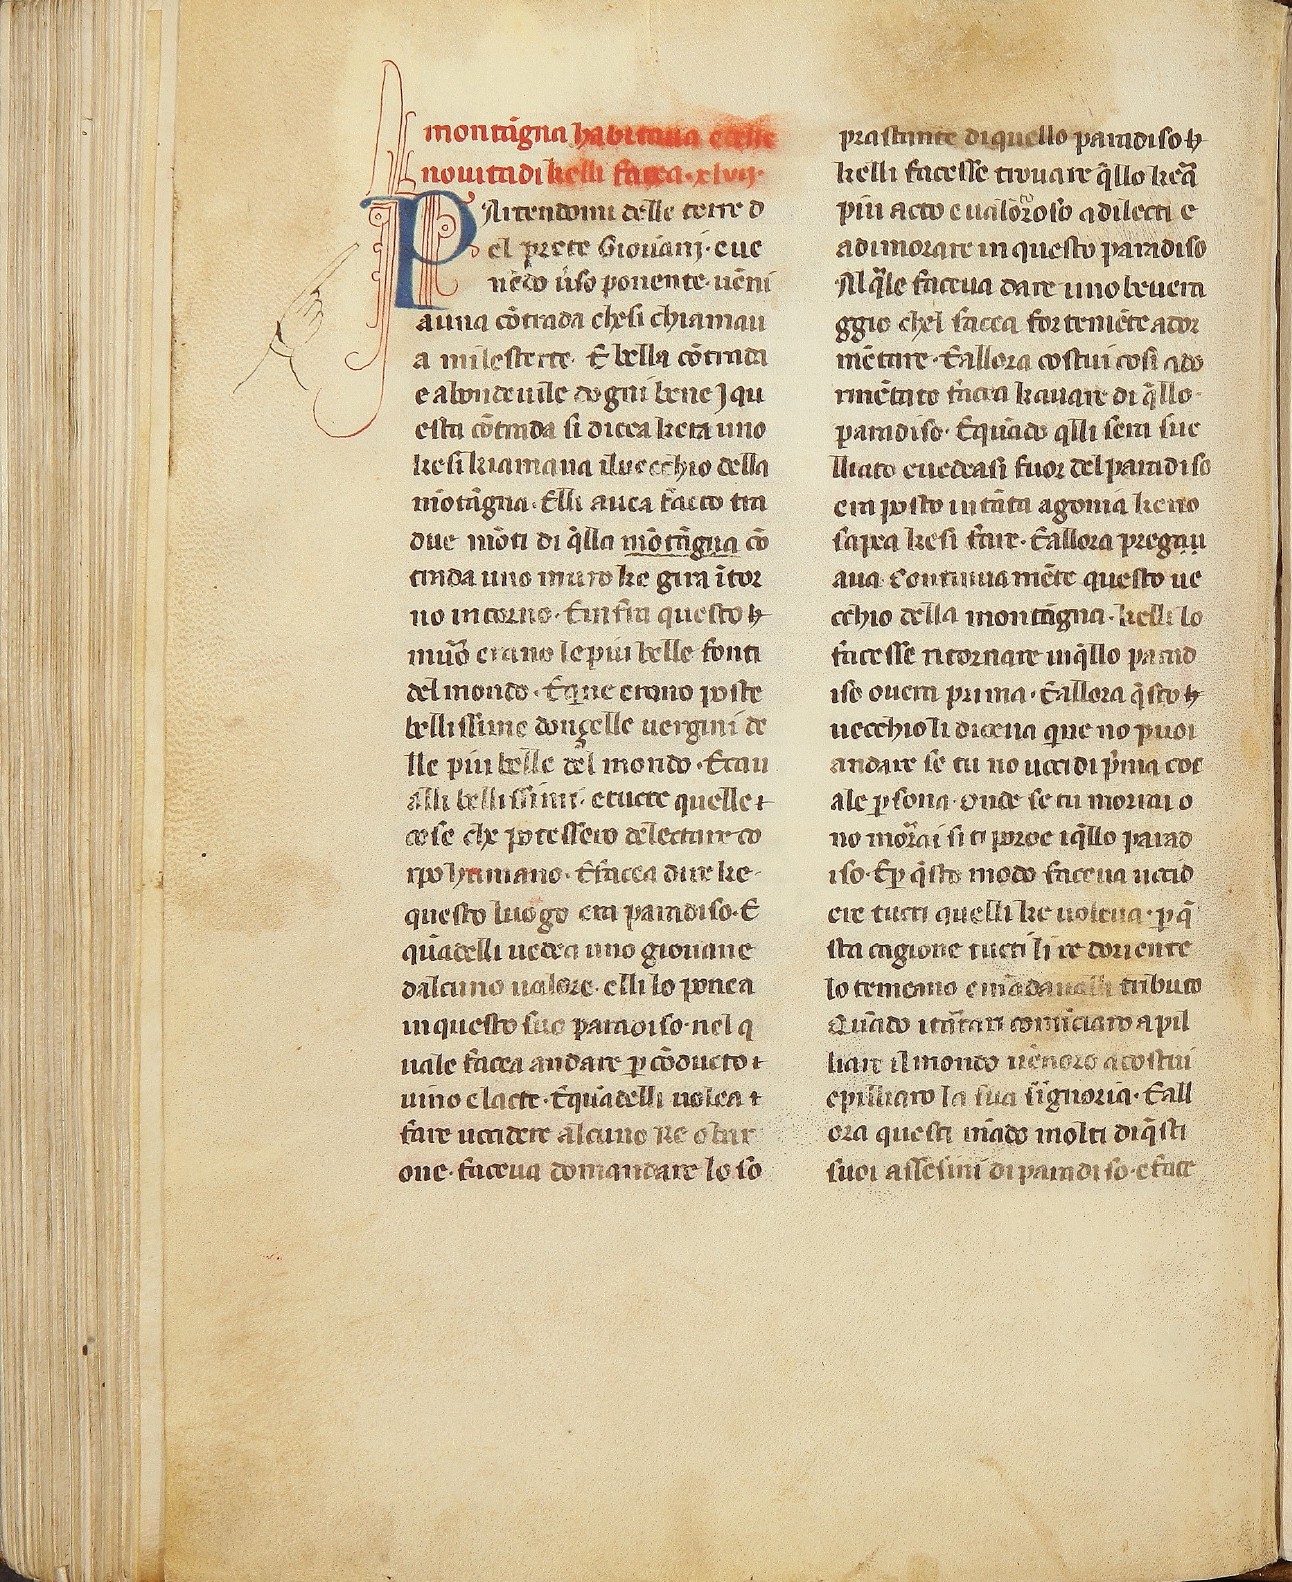 montāgna habitaua edelle
nouitadi kelli facea·xlvij·
PArtendomi delle terre d
el prete Giouanj·eue
nēdo ūso ponente·uēni
auna cōtrada chesi chiamau
a milesterte· E bella cōtrada
e abondeuile dogni bene J qu
esta cōtrada si dicea kera uno
kesi kiamaua iluecchio della
mōtāgna· Elli auea facto tra
due mōti di q̄lla mōtāgna cō
trada uno muro ke gira ītor
no intorno· Einfra questo
muro erano le piu belle fonti
del mondo· Eque erano poste
bellissime donçelle uergini de
lle piu belle del mondo· Ecau
alli bellissimi· etutte quelle
cose che potessero delectare co
rpo humano· Efacea dire ke
questo luogo era paradiso· E
quādelli uedea uno giouane
dalcuno ualore· elli lo ponea
inquesto suo paradiso·nel q
uale facea andare p cōducto
uino elacte· Equādelli uolea
fare uccidere alcuno re o bar
one· faceua domandare lo so
prastante diquello paradiso
kelli facesse trouare q̄llo kea
piu acto eualoroso adilecti e
adimorare in questo paradiso
Al q̄le faceua dare uno beuera
ggio chel facea fortemēte ador
mētare· Eallora costui cosi ado
rmētato facea kauare di q̄llo
paradiso· Equādo q̄lli sera sue
lliato euedeasi fuor del paradiso
era posto intāta agonia keno
sapea kesi fare· Eallora pregau
aua continuamēte questo ue
cchio della montāgna· kelli lo
facesse ritornare inq̄llo parad
iso ouera prima· Eallora q̄sto
uecchio li diceua que no puoi
andare se tu no uccidi p̄ma cot
ale psona· onde se tu morrai o
no morrai si ti porroe iq̄llo parad
iso· Ep q̄sto modo faceua uccid
ere tutti quelli ke uoleua· p q̄
sta cagione tutti li re doriente
lo temeano emādaualli tributo
Quādo itartari comiciaro a pil
liare il mondo uēnoro a costui
epilliaro la sua signoria· Eall
ora questi mādo molti diq̄sti
suoi assesini di paradiso·efece